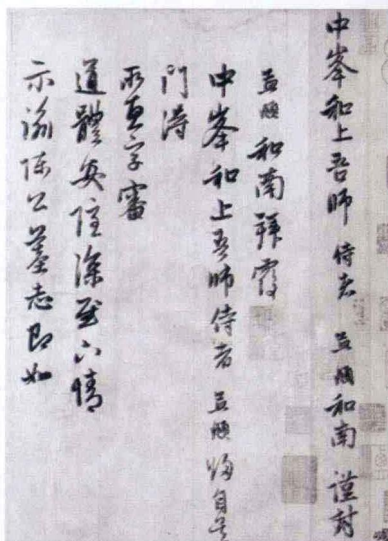 中峯和上吾師 侍者 孟頫和南 謹封
孟頫和南拜覆
中峯和上吾師侍者 孟頫 自吳
門得
所惠字審
道體安隱深慰下情
示諭陳公墓志即如